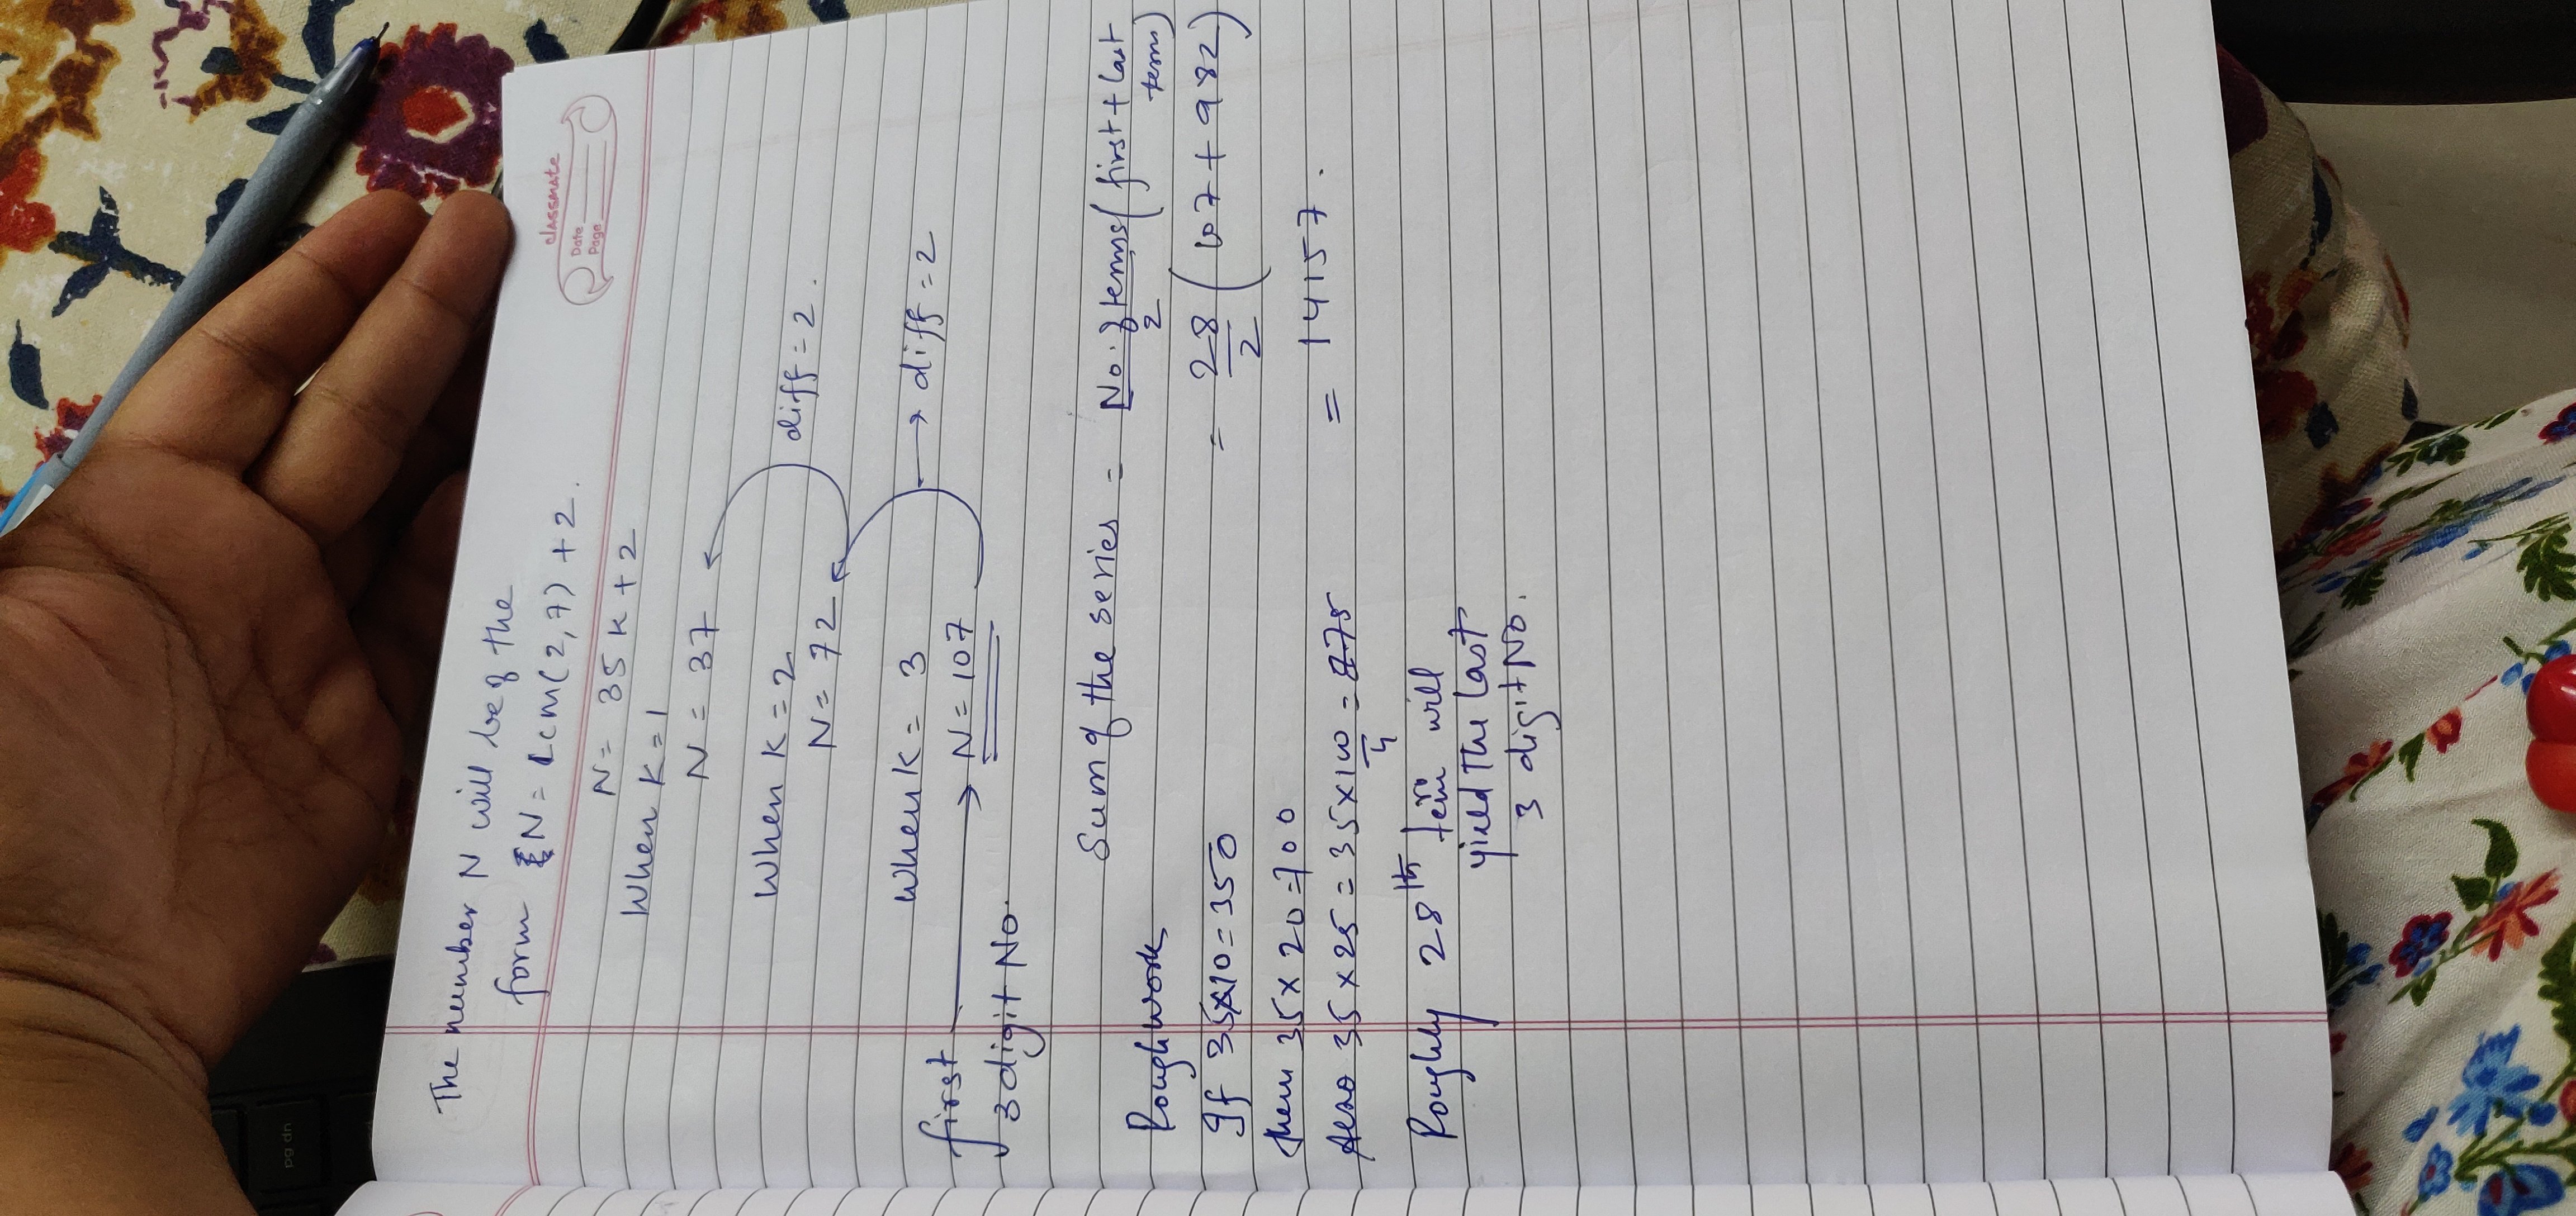 classmate
Date
Page
The number N will be of the
form N = LCM(2,7) + 2.
N = 35K + 2
When K = 1
N = 37
diff = 2.
When K = 2
N = 72
When K = 3
→ diff = 2
first → N = 107
3 digit No.
Sum of the series = No. of terms/2 (first + last term)
= 28/2 (107 + 982)
= 14157.
Rough work
If 35×10 = 350
then 35×20 = 700
Also 35×25 = 35×100/4 = 875
Roughly 28th term will
yield the last
3 digit No.
pg dn